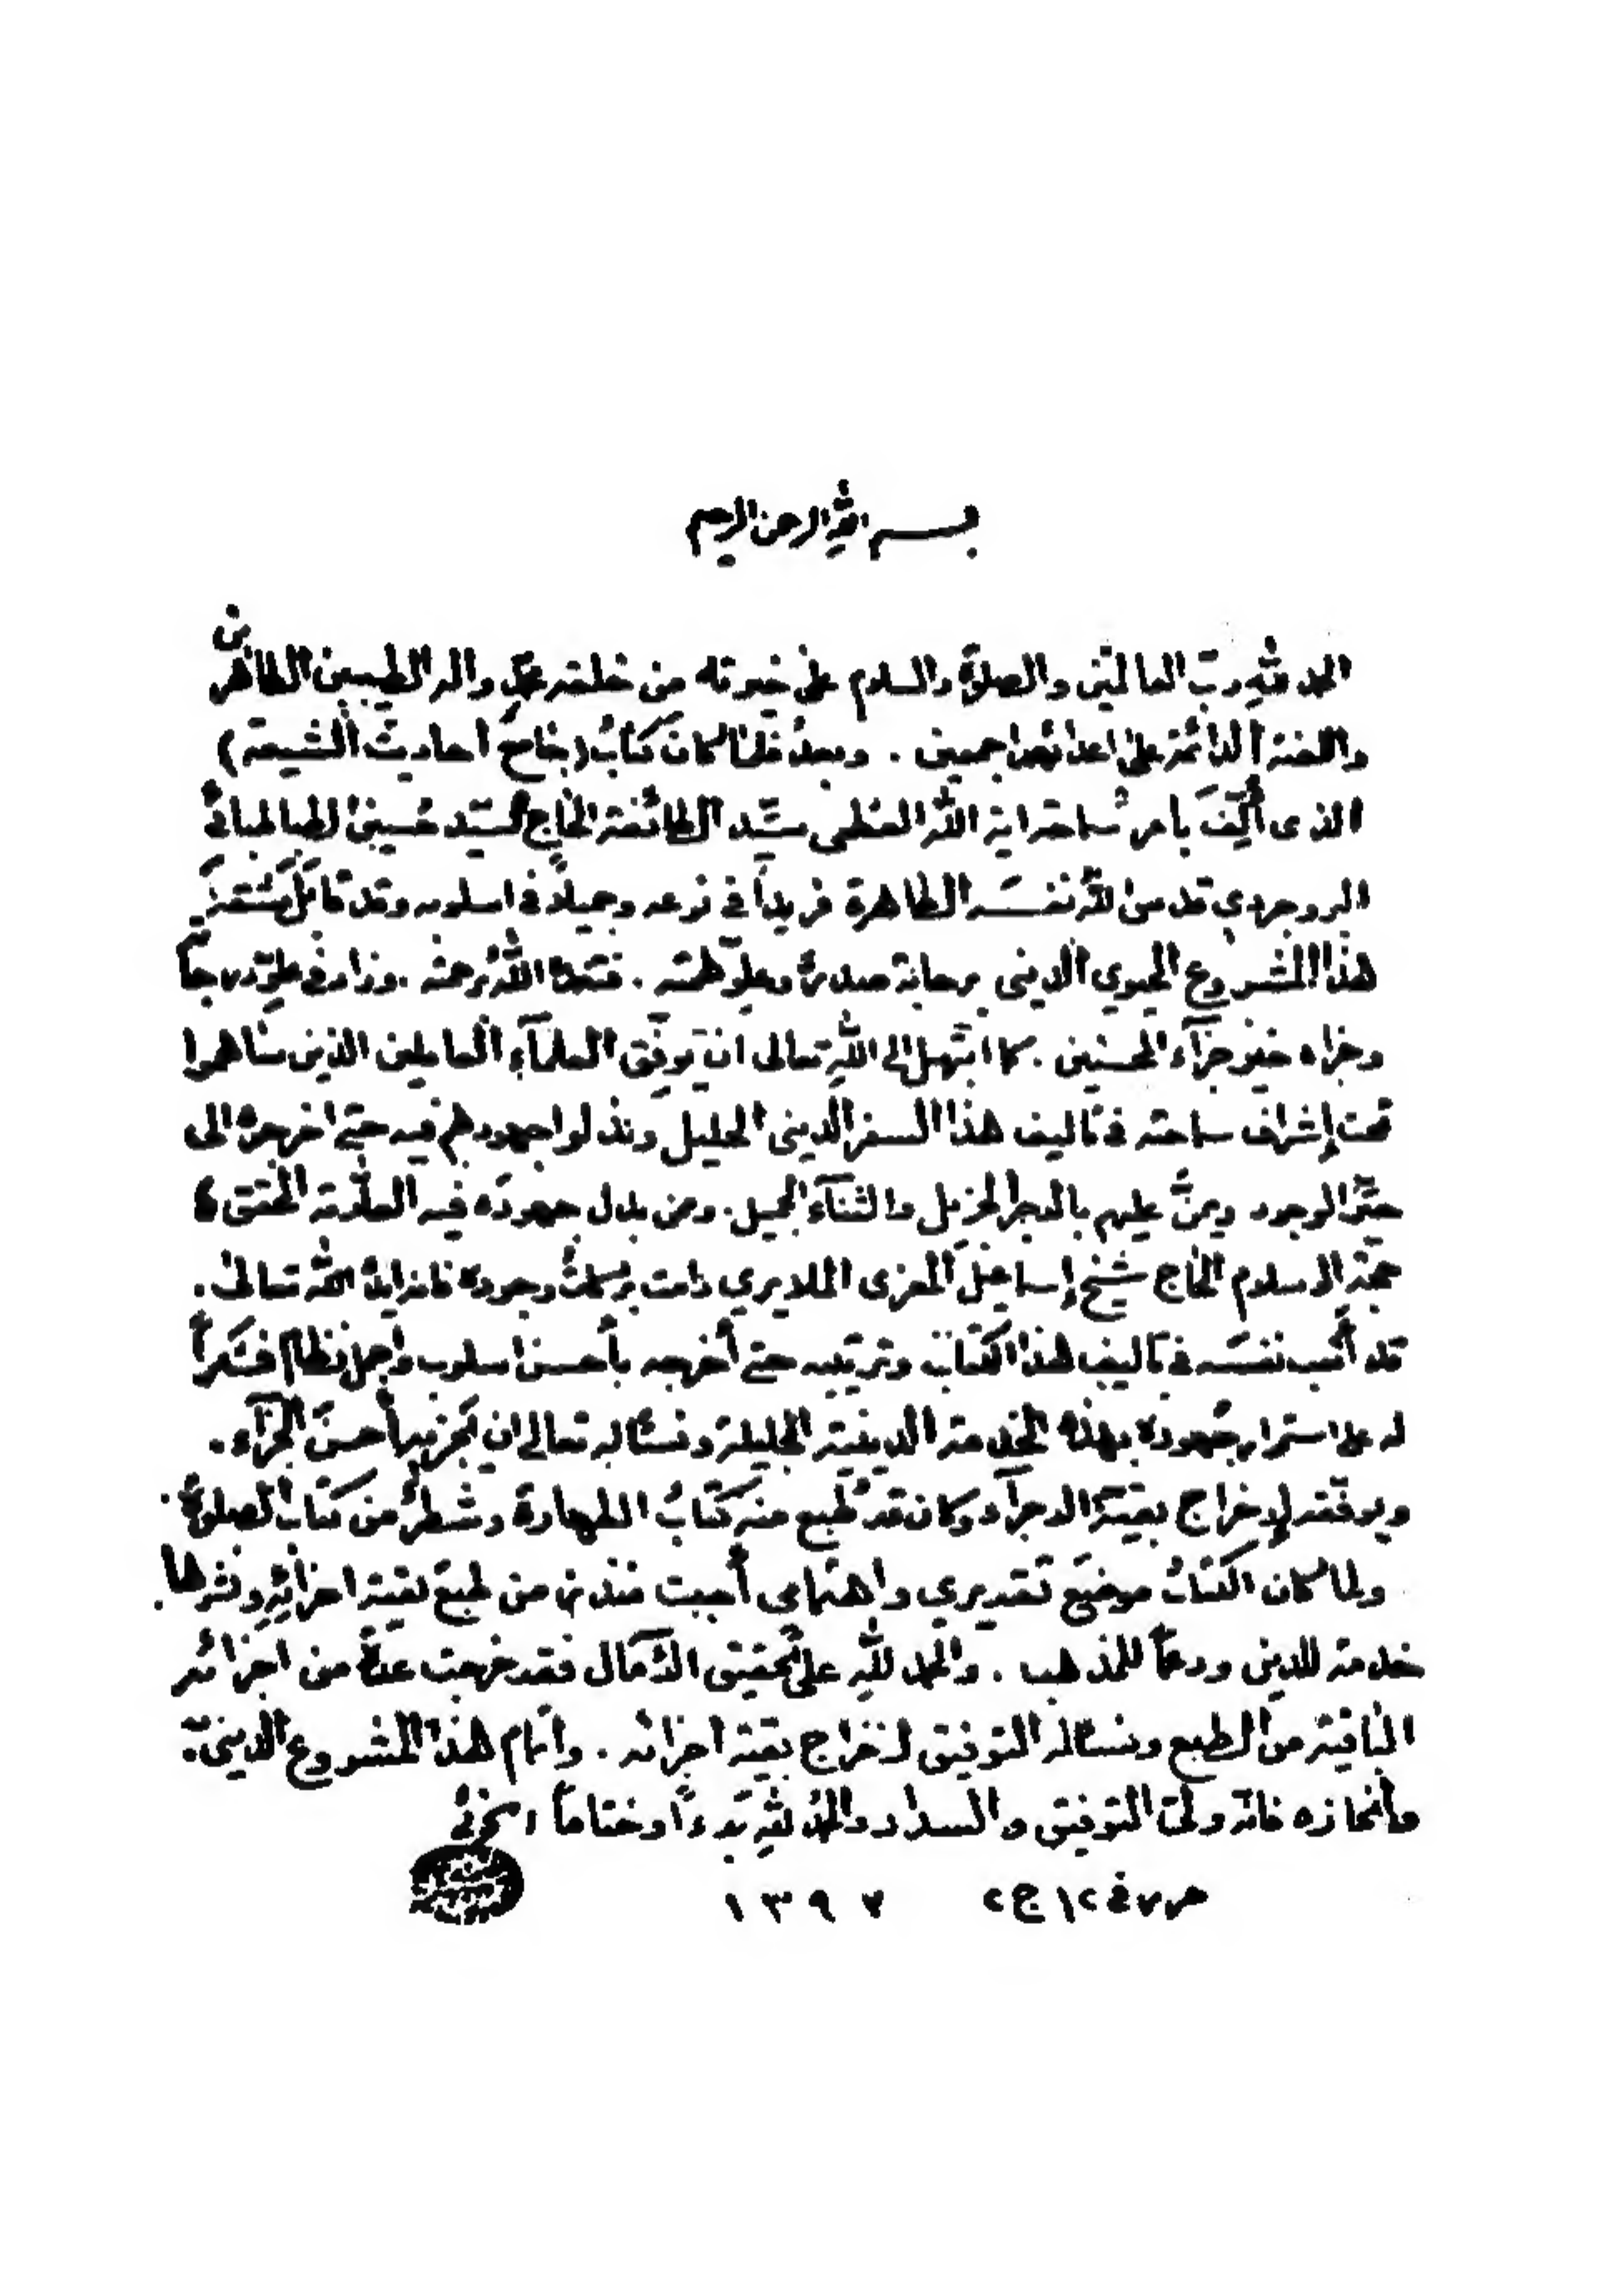 بسم الله الرحمن الرحيم
الحمد لله رب العالمين والصلاة والسلام على خيرته من خلقه محمد واله الطيبين الطاهرين
واللعنة الدائمة على اعدائهم اجمعين . وبعد فلما كان كتاب (جامع أحاديث الشيعة)
الذى أُلِّفَ بأمر سماحة اية الله العظمى سيّد الطائفة الحاج السيّد حسين الطباطبائي
البروجردي قدس الله نفسه الطاهرة فريداً في نوعه وجميلاً في اسلوبه وقد قابل
هذا المشروع الحيوي الديني برحابة صدره وعلوّ همته . فتغمده الله برحمته . وزاد في علوّ درجاته
وجزاه خير جزاء المحسنين . كما ابتهل إلى الله تعالى ان يوفّق العلمآء العاملين الذين ساهموا
تحت إشراف سماحته في تأليف هذا السفر الديني الجليل وبذلوا جهودهم فيه حتى اخرجوه الى
حيّز الوجود ويمنّ عليهم بالاجر الجزيل والثنآء الجميل . وممن بذل جهوده فيه العلّامة المحقق
حجة الاسلام الحاج شيخ إسماعيل المعزى الملايري دامت بركات وجوده فانه ايده الله تعالى .
قد أتعب نفسه في تأليف هذا الكتاب وترتيبه حتى أخرجه بأحسن اسلوب وأجمل نظام فشكراً
له على استمرار جهوده بهذه الخدمة الدينية الجليلة ونسأله تعالى ان يجزيه أحسن الجزآء .
ويوفّقه لإخراج بقية الاجزآء وكان قد طبع منه كتاب الطهارة وشطر من كتاب الصلوة .
ولما كان الكتاب موضع تقديري واهتمامى أحببت منذ زمن طبع بقية اجزائه ونشرها .
خدمة للدين ودعماً للمذهب . والحمد لله على تحقيق الآمال فقد خرجت عدة من اجزائه
الباقية من الطبع ونسأله التوفيق لاخراج بقية اجزائه . واتمام هذا المشروع الديني
وأنجازه فانه وليّ التوفيق والسداد والحمد لله بدءاً وختاماً الخوئي
في ١٢ ج ٢ ١٣٩٧